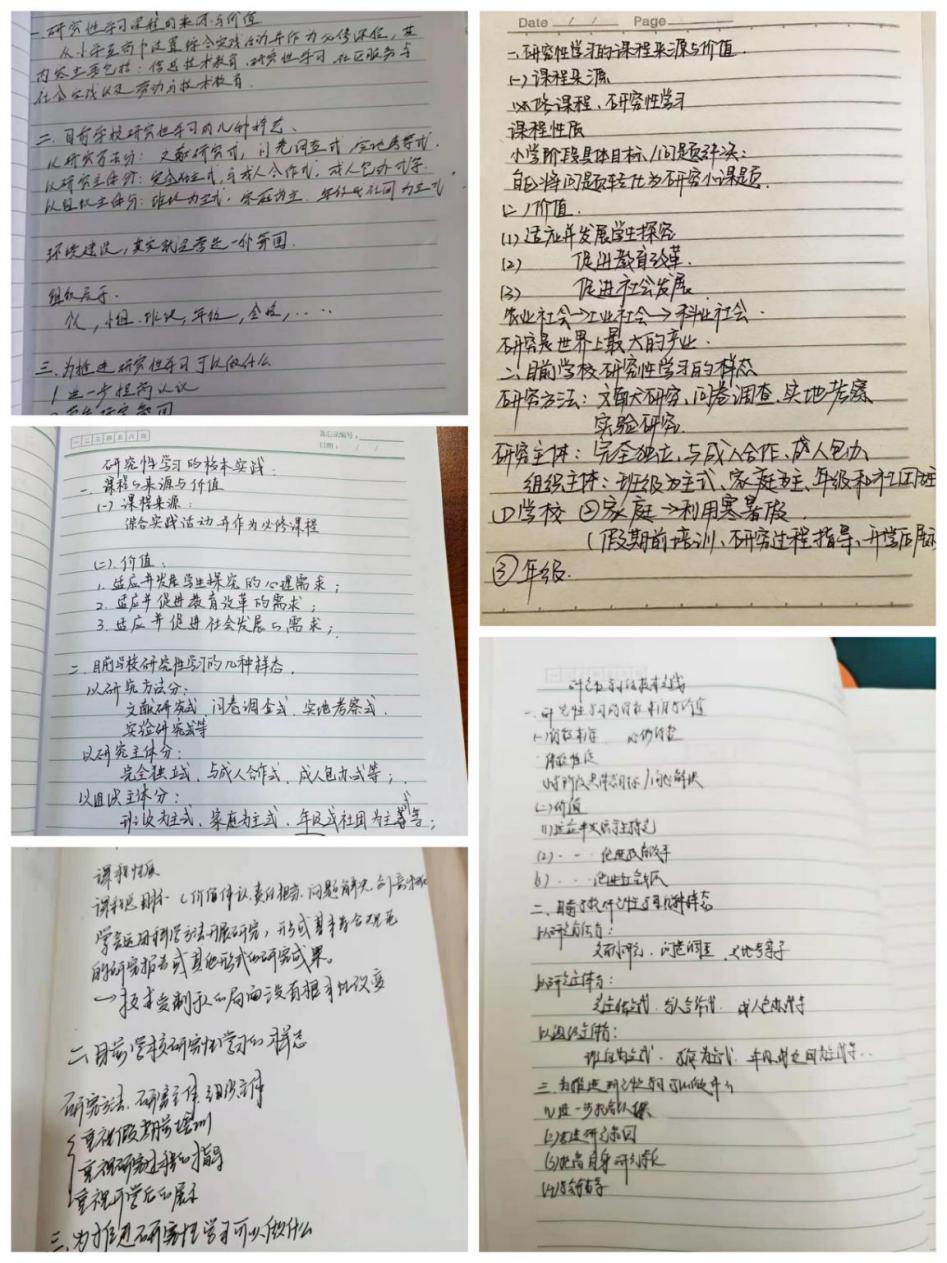 一.研究性学习课程的来源与价值
从小学至高中设置综合实践活动并作为必修课程,其
内容主要包括:信息技术教育.研究性学习.社区服务与
社会实践以及劳动与技术教育.
二.目前学校研究性学习的几种样态.
以研究方法分:文献研究式,问卷调查式,实地考察式.
以研究主体分:完全独立式,与成人合作式,成人包办式等.
以组织主体分:班级为主式,家庭为主.年级或社团为主式
环境建设,其实就是营造一个氛围.
组织展示.
个人,小组.班级,年级,全校,.....
三.为推进研究性学习可以做什么
1.进一步提高认识
研究性学习的校本实践.
一.课程的来源与价值
(一)课程来源:
综合实践活动并作为必修课程
(二).价值:
1.适应并发展学生探究的心理需求;
2.适应并促进教育改革的需求;
3.适应并促进社会发展的需求;
二.目前学校研究性学习的几种样态.
以研究方法分:
文献研究式.问卷调查式.实地考察式.
实验研究式等
以研究主体分:
完全独立式.与成人合作式.成人包办式等;
以组织主体分:
班级为主式、家庭为主式、年级或社团为主式等;
课程性质
学会运用科学方法开展研究,形成基本符合规范
的研究报告或其他形式的研究成果。
→技术受制于人的局面没有根本性改变
二.目前学校研究性学习的样态
研究方法.研究主体.组织主体
重视假期前培训
重视研究过程的指导
重视开学后的展示
三.为推进研究性学习可以做什么
Date / / Page
一.研究性学习的课程来源与价值.
(一)课程来源
必修课程、研究性学习
课程性质
小学阶段具体目标/问题解决:
自己将问题转化为研究小课题.
(二)价值.
(1)适应并发展学生探究
(2) 促进教育改革.
(3) 促进社会发展.
农业社会→工业社会→科业社会.
研究是世界上最大的产业.
二.目前学校研究性学习的样态
研究方法:文献研究、问卷调查、实地考察
实验研究.
研究主体:完全独立、与成人合作、成人包办
组织主体:班级为主式、家庭为主、年级和社区为主
①学校 ②家庭→利用寒暑假
(假期前培训、研究过程指导、开学后展示
③年级.
研究性学习的校本实践
一.研究性学习的课程来源与价值
(一)课程来源 必修课程
课程性质
小学阶段具体目标/问题解决
(二)价值
(1)适应并发展学生探究
(2)... 促进教育改革
(3)... 促进社会发展
二.目前学校研究性学习的几种样态
以研究方法分:
文献研究、问卷调查、实地考察等
以研究主体分:
以组织主体分:
三.为推进研究性学习可以做什么
(1)进一步提高认识